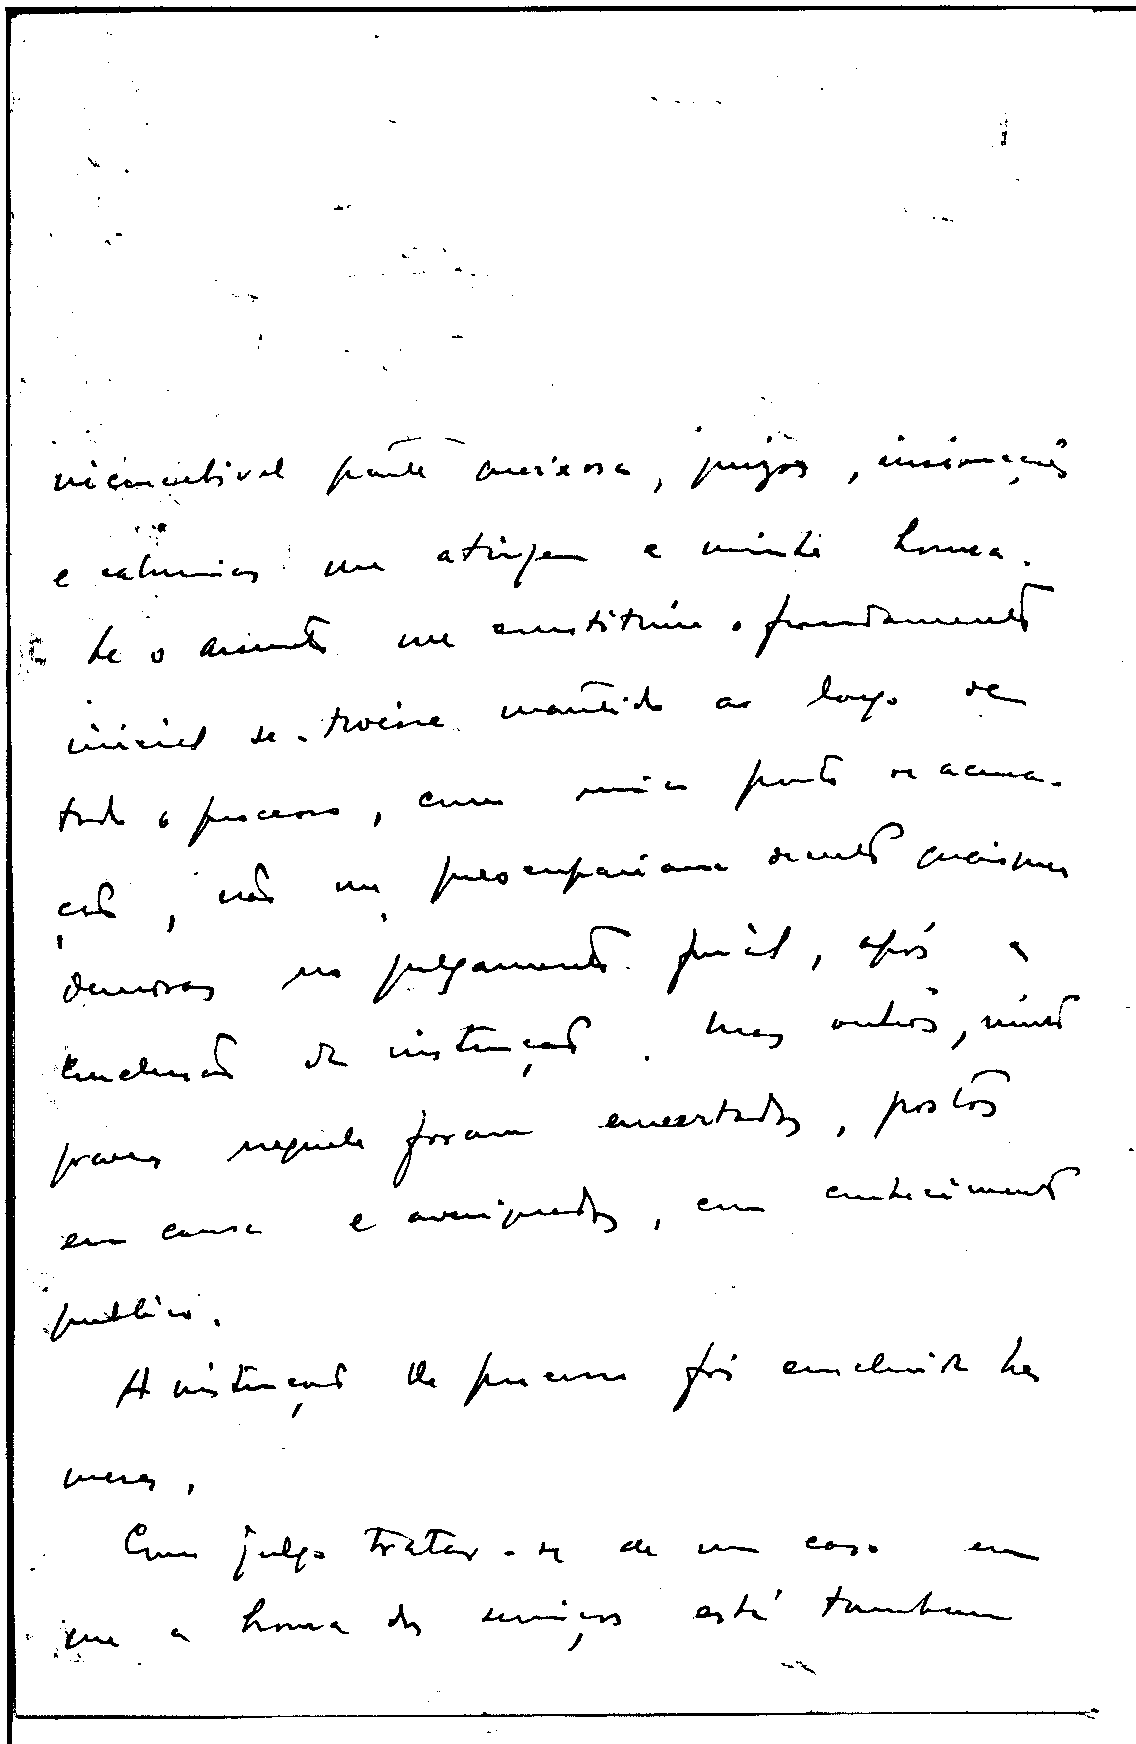 parte queixosa, juizos, insinuações
e calunias que atingem a minha honra.
Se o assunto que constituiu o fundamento
inicial se tivesse mantido ao longo de
todo o processo, como unico ponto de acusa-
ção, não me preocupariam decerto quaisquer
demoras no julgamento final, após a
conclusão da instrução. Mas outros, muito
graves naquele foram enxertados, postos
em causa e averiguados, com conhecimento
publico.
A instrução do processo foi concluida ha
meses.
Como julgo tratar-se de um caso em
que a honra dos serviços está tambem